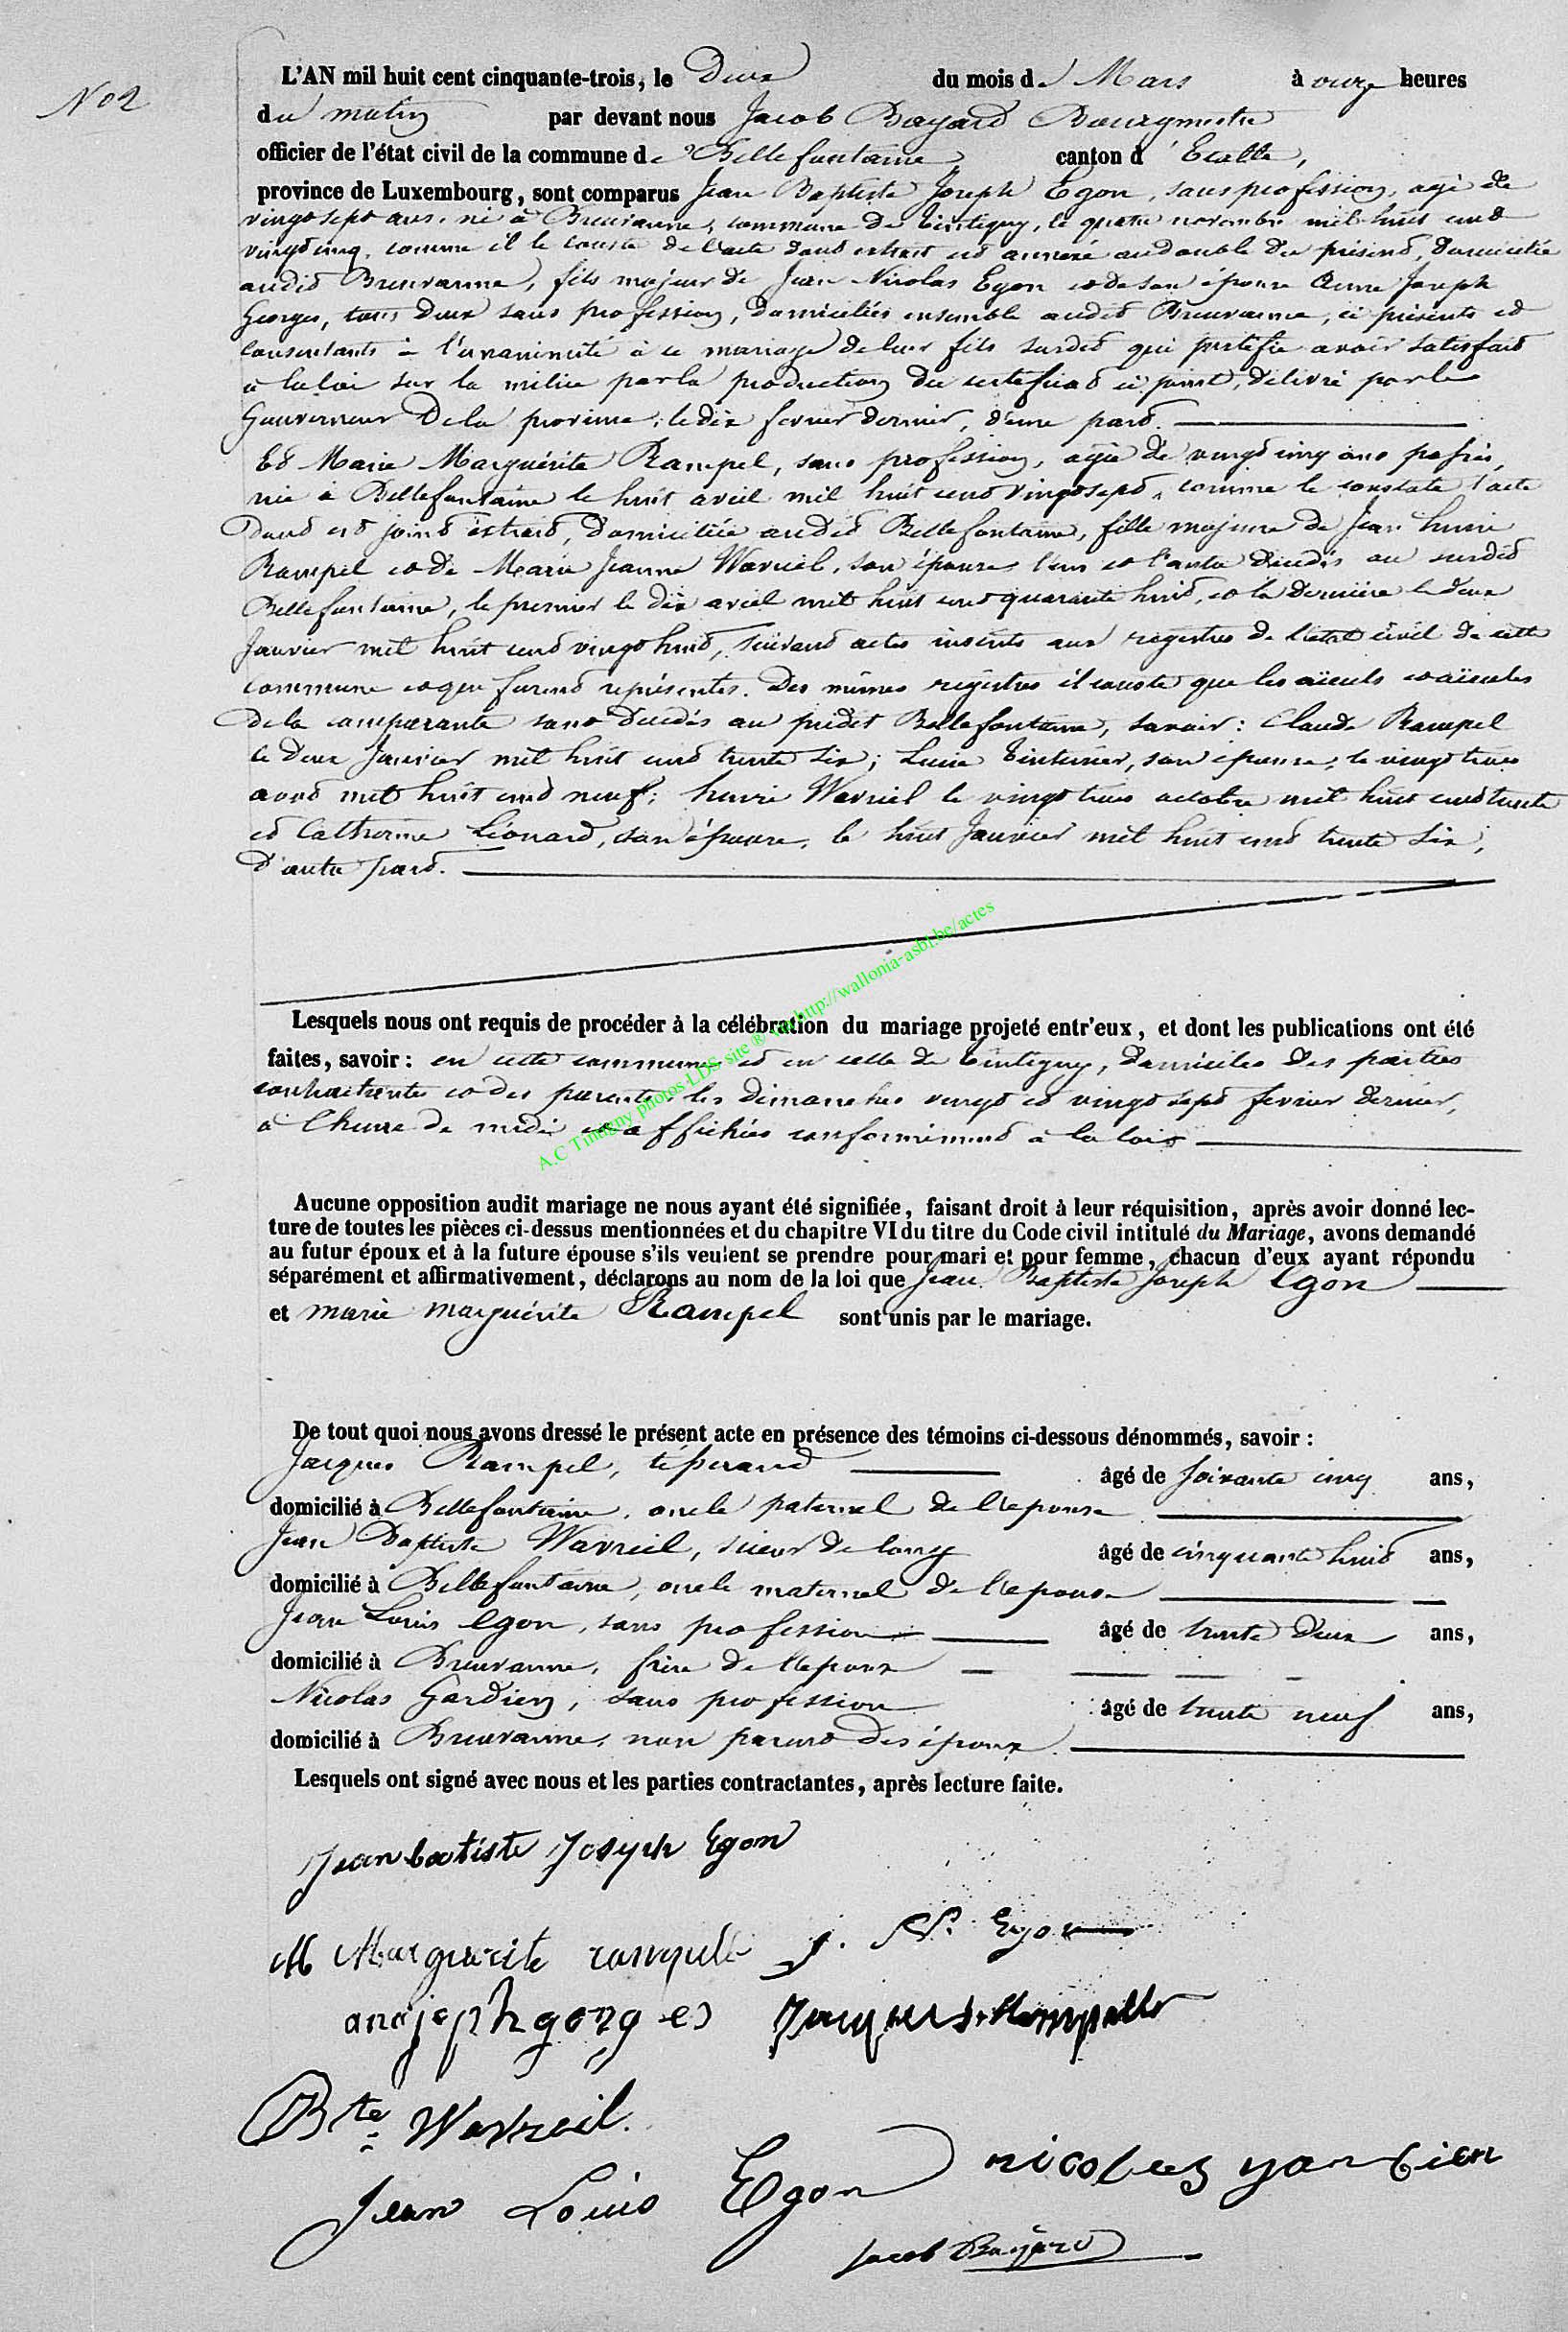 No 2
L'AN mil huit cent cinquante-trois, le Deux du mois de Mars à onze heures
du matin par devant nous Jacob Bayard Bourgmestre
officier de l'état civil de la commune de Bellefontaine canton d'Etalle,
province de Luxembourg, sont comparus Jean Baptiste Joseph Egon, sans profession, agé de
vingt sept ans, né à Breuvanne, commune de Tintigny, le quatre novembre mil huit cent
vingt cinq, comme il le conste de l'acte dont extrait est annexé au double du présent, domicilié
audit Breuvanne, fils majeur de Jean Nicolas Egon et de son épouse Anne Joseph
Georges, tous deux sans profession, domiciliés ensemble audit Breuvanne, ici présents et
consentants à l'unanimité à ce mariage de leur fils susdit qui justifie avoir satisfait
à la loi sur la milice par la production du certificat ci joint, délivré par le
Gouverneur De la province, le dix fevrier dernier, d'une part.
Et Marie Marguérite Rampel, sans profession, agée de vingt cinq ans passés,
née à Bellefontaine le huit avril mil huit cent vingt sept, comme le constate l'acte
Dont est joint extrait, Domiciliée audit Bellefontaine, fille majeure de Jean henri
Rampel et de Marie Jeanne Wavreil, son épouse, l'un et l'autre décédés au susdit
Bellefontaine, le premier le dix avril mil huit cent quarante huit, et la dernière le deux
Janvier mil huit cent vingt huit, suivant actes inscrits aux registres de l'état civil de cette
commune et que furent représentés. Des mêmes régistres il conste que les aïeuls et aïeules
de la comparante sont décédés au prédit Bellefontaine, savoir : Claude Rampel
le deux Janvier mil huit cent trente six ; Lucie Tinturier, son épouse, le vingt trois
aout mil huit cent neuf ; henri Wavreil le vingt trois octobre mil huit cent trente
et Catherine Léonard, son épouse, le huit Janvier mil huit cent trente six,
D'autre part.
Lesquels nous ont requis de procéder à la célébration du mariage projeté entr'eux, et dont les publications ont été
faites, savoir : en cette commune et en celle de Tintigny, domiciles des parties
contractantes et des parents, les dimanches vingt et vingt sept fevrier dernier,
à l'heure de midi et affichées conformément à la loi
Aucune opposition audit mariage ne nous ayant été signifiée, faisant droit à leur réquisition, après avoir donné lec-
ture de toutes les pièces ci-dessus mentionnées et du chapitre VI du titre du Code civil intitulé du Mariage, avons demandé
au futur époux et à la future épouse s'ils veulent se prendre pour mari et pour femme, chacun d'eux ayant répondu
séparément et affirmativement, déclarons au nom de la loi que Jean Baptiste Joseph Egon
et marie marguérite Rampel sont unis par le mariage.
De tout quoi nous avons dressé le présent acte en présence des témoins ci-dessous dénommés, savoir :
Jacques Rampel, tisserand âgé de soixante cinq ans,
domicilié à Bellefontaine, oncle paternel de l'épouse
Jean Baptiste Wavreil, scieur de long âgé de cinquante huit ans,
domicilié à Bellefontaine, oncle maternel de l'épouse
Jean Louis Egon, sans profession âgé de trente deux ans,
domicilié à Breuvanne, frère de l'époux
Nicolas Gardien, sans profession âgé de trente neuf ans,
domicilié à Breuvanne, non parent des époux.
Lesquels ont signé avec nous et les parties contractantes, après lecture faite.
Jean batiste Joseph Egon
M Marguerite rampele J. N. Egon
ana jeph gorg es Jacques Rampelle
Bte Wavreil.
Jean Louis Egon nicolas gardien
Jacob Bayard
A.C Tintigny photos LDS site ® sur http://wallonia-asbl.be/actes